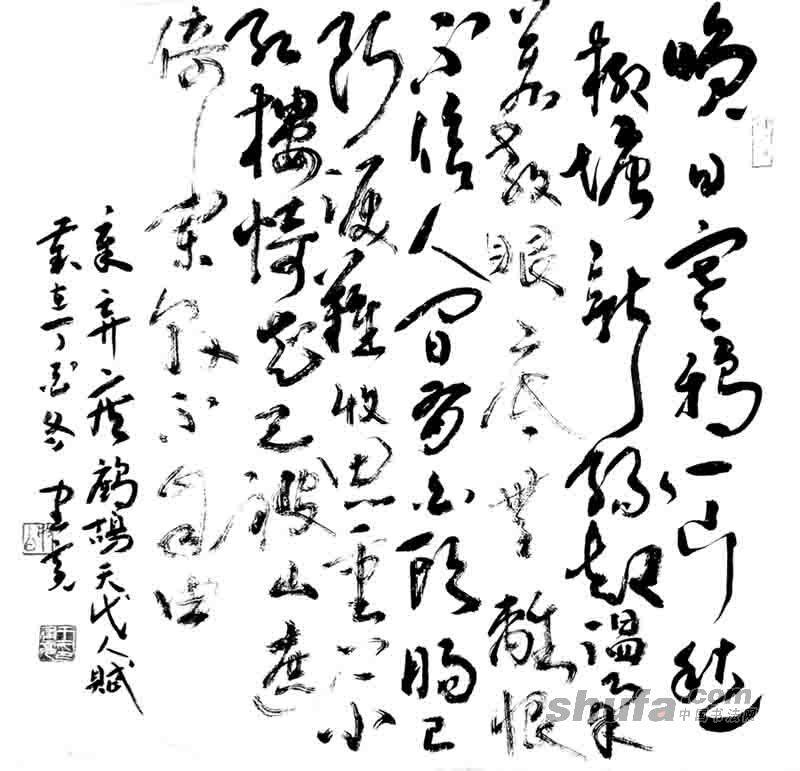 晚日寒鴉一片愁
柳塘新綠却温柔
若教眼底無離恨
不信人间有白頭肠已
断淚難收思重上小
红樓情知已被山遮
倚闌干不自由
辛弃疾鹧鴣天代人賦
歲在丁酉冬
shufa.com
中国书法网